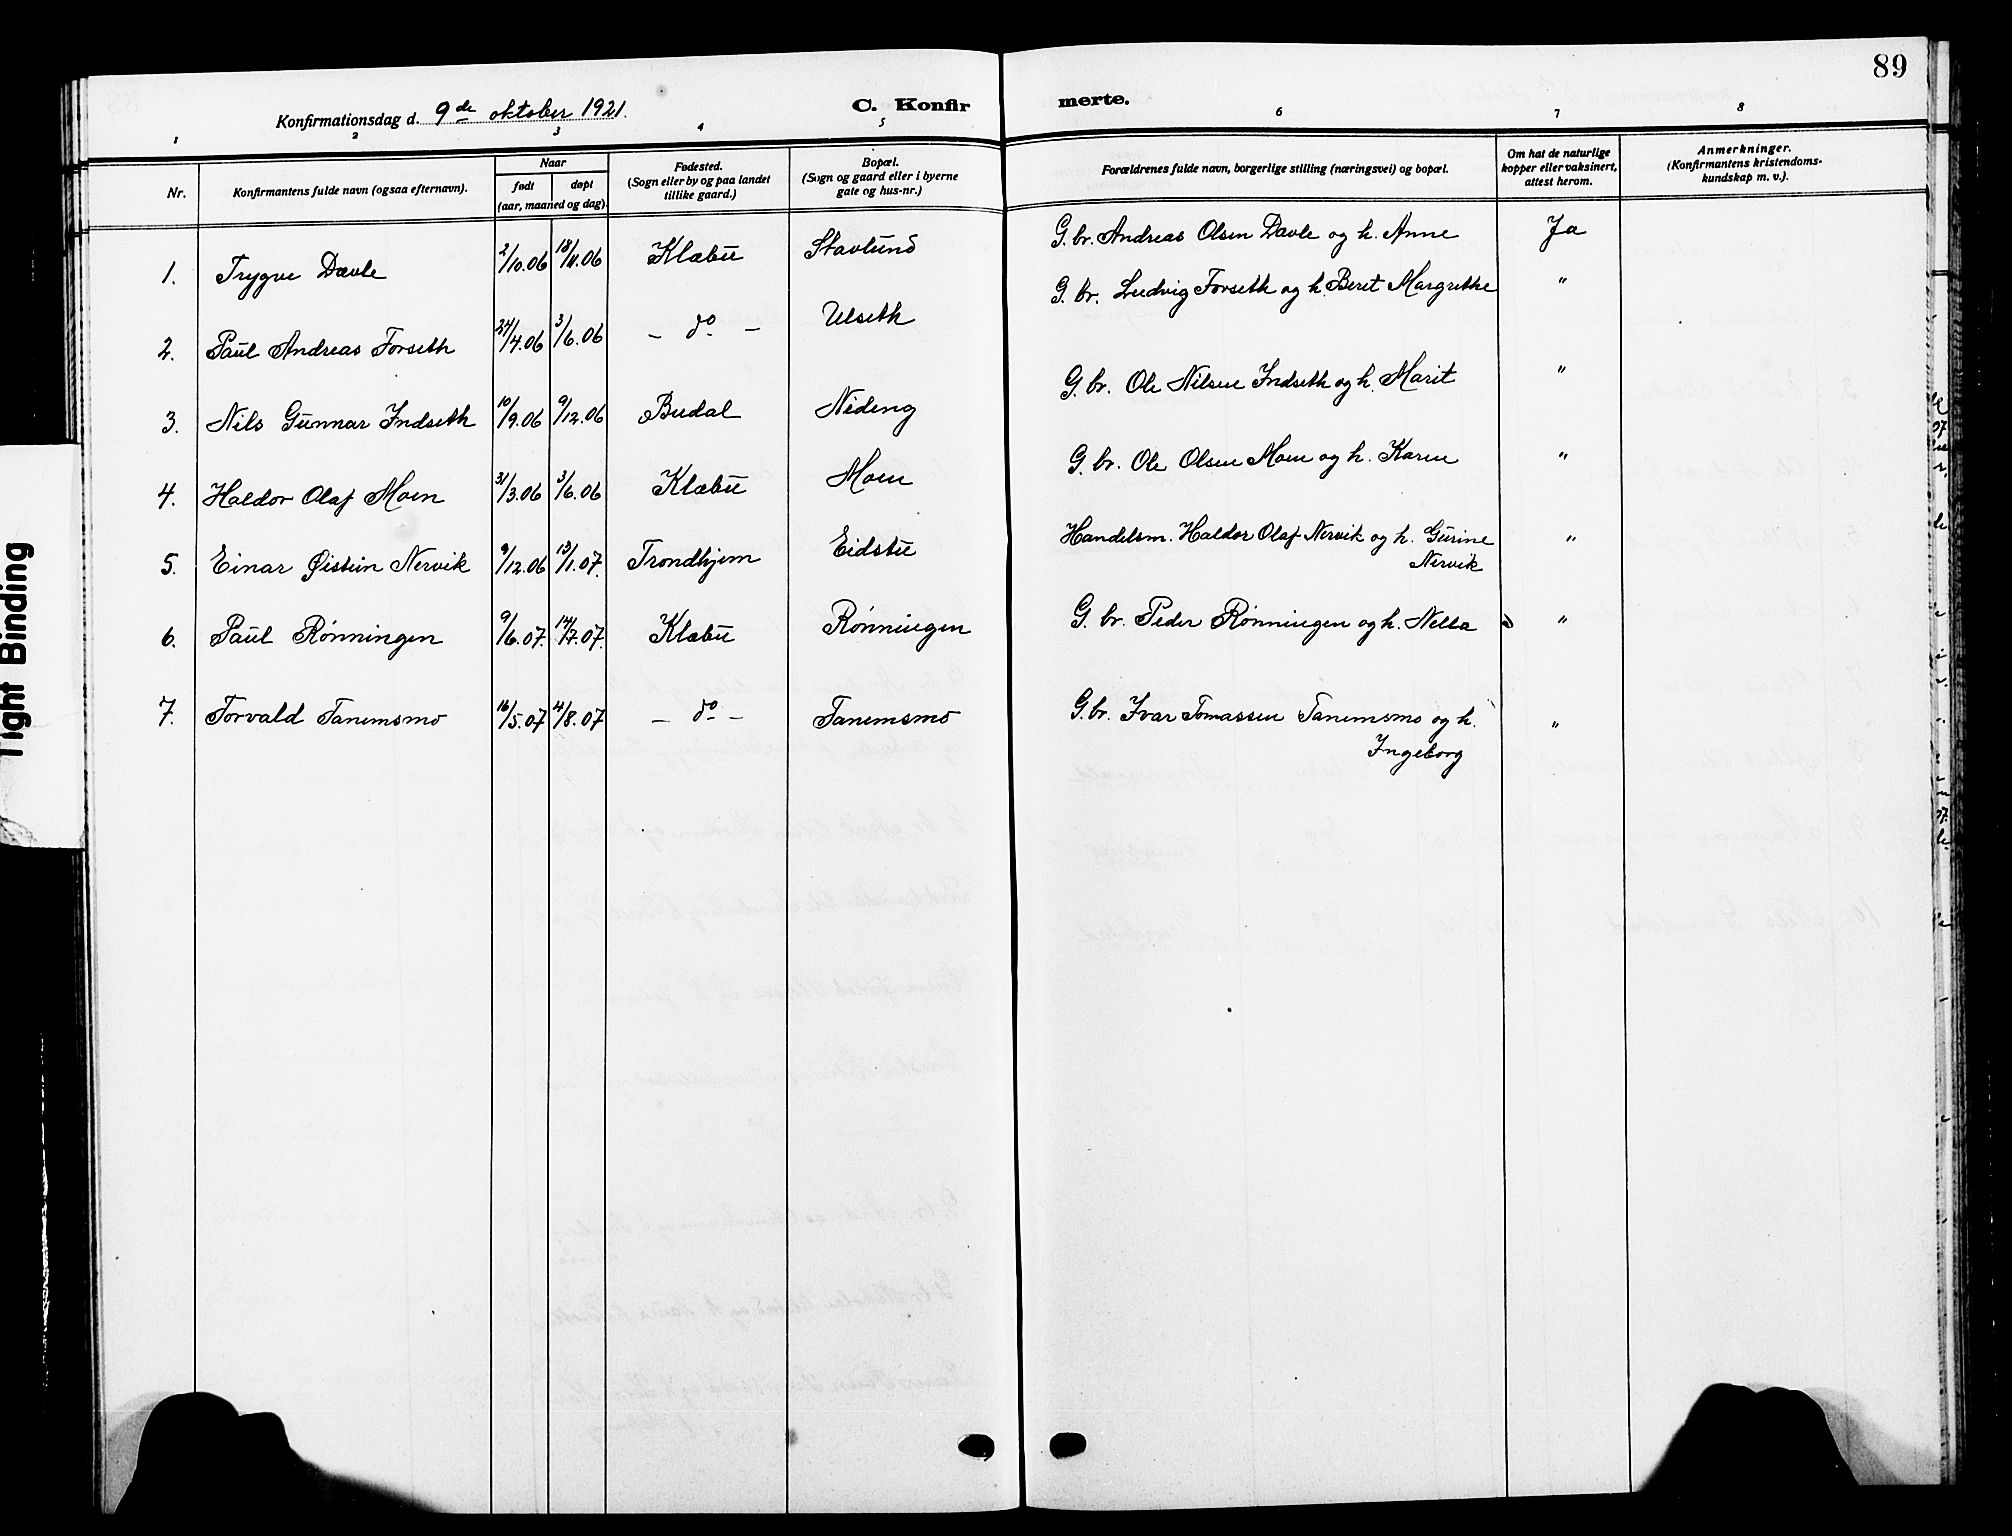 89
Konfirmationsdag d. 9de oktober 1921.
C. Konfirmerte.
1 2 3 4 5 6 7 8
Nr. Konfirmantens fulde navn (ogsaa efternavn). Naar født døpt (aar, maaned og dag). Fødested. (Sogn eller by og paa landet tillike gaard.) Bopæl. (Sogn og gaard eller i byerne gate og hus-nr.) Forældrenes fulde navn, borgerlige stilling (næringsvei) og bopæl. Om hat de naturlige kopper eller vaksinert, attest herom. Anmerkninger. (Konfirmantens kristendomskundskap m. v.).
1. Trygve Davle 2/10.06 18/11.06 Klæbu Stavlund G. br. Andreas Olsen Davle og h. Anne Ja
2. Paul Andreas Forseth 24/4.06 3/6.06 – do – Ulseth G. br. Ludvig Forseth og h. Beret Margrethe "
3. Nils Gunnar Indseth 10/9.06 9/12.06 Budal Nideng G. br. Ole Nilsen Indseth og h. Marit "
4. Haldor Olaf Moen 31/3.06 3/6.06 Klæbu Moen G. br. Ole Olsen Moen og h. Karen "
5. Einar Øistein Nervik 9/12.06 13/1.07. Trondhjem Eidstu Handelsm. Haldor Olaf Nervik og h. Gurine "
Nervik
6. Paul Rønningen 9/6.07. 14/7.07. Klæbu Rønningen G. br. Peder Rønningen og h. Nella "
7. Torvald Tanemsmo 16/5.07 4/8.07 – do – Tanemsmo G. br. Ivar Tomassen Tanemsmo og h. "
Ingeborg
Tight Binding